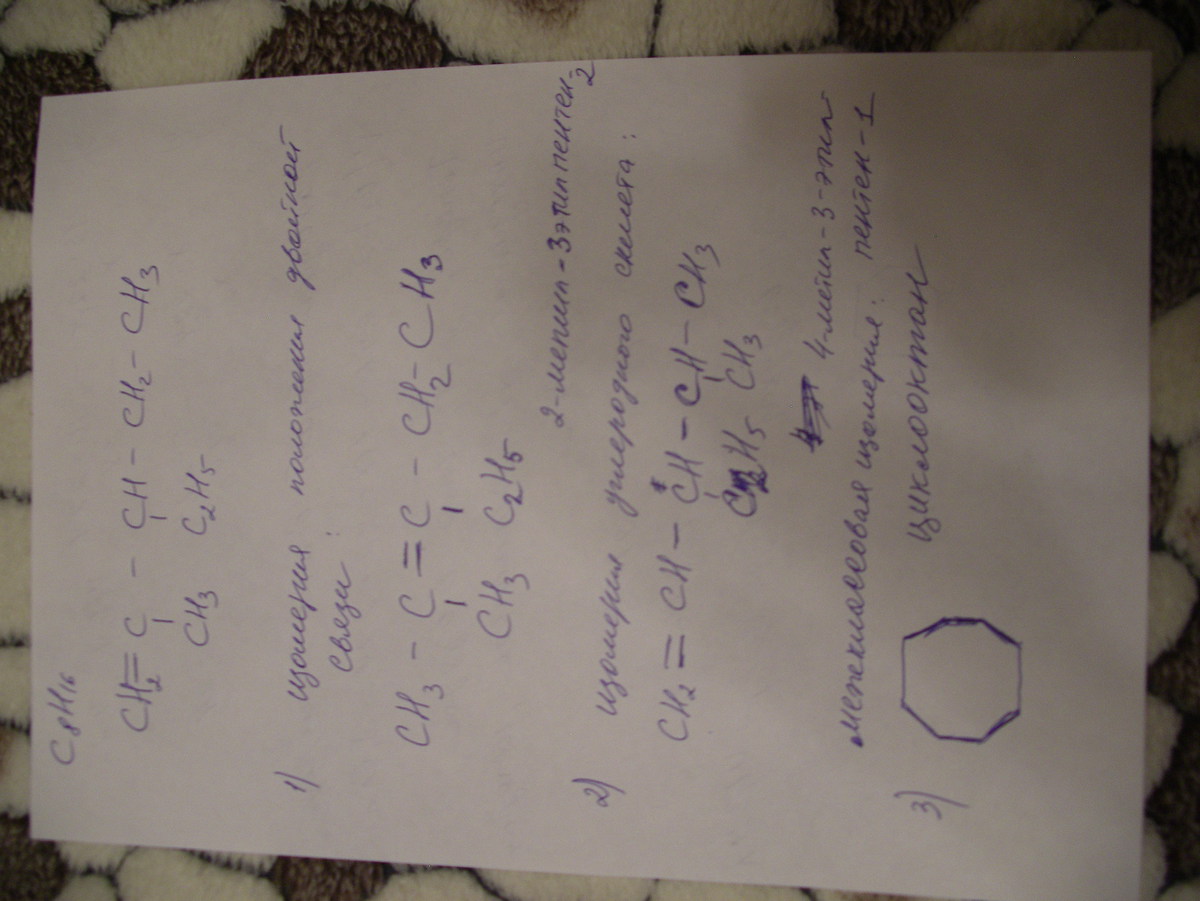 C₈H₁₆
CH₂=C - CH - CH₂ - CH₃
CH₃ C₂H₅
1) изомерия положения двойной
связи:
CH₃ - C = C - CH₂ - CH₃
CH₃ C₂H₅
2-метил-3этилпентен2
2) изомерия углеродного скелета:
CH₂ = CH - CH - CH - CH₃
C₂H₅ CH₃
4-метил-3-этил
межклассовая изомерия: пентен-1
3) циклооктан